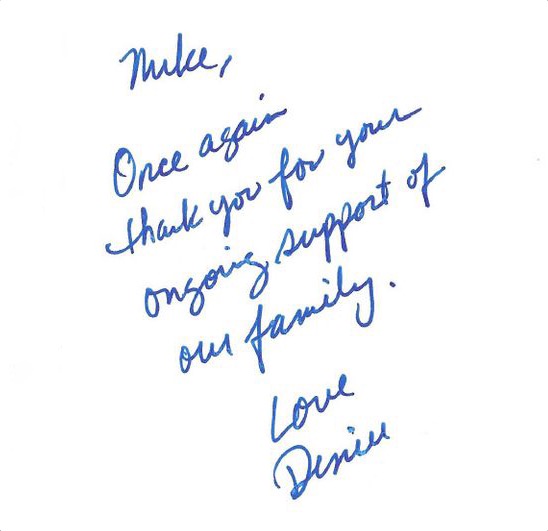 Mike,
Once again
thank you for your
ongoing support of
our family.
Love
Denise